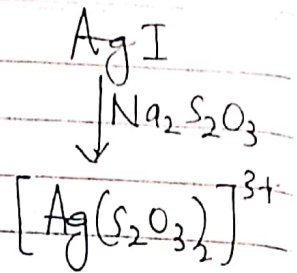 AgI
↓ Na₂S₂O₃
[Ag(S₂O₃)₂]³⁺